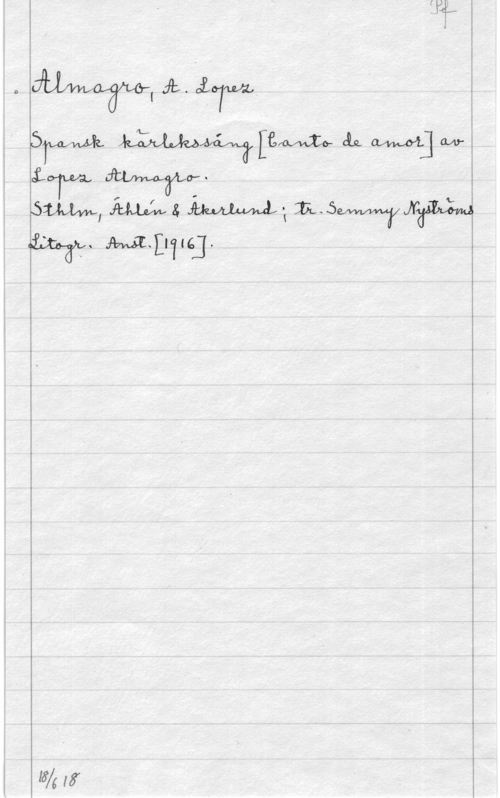 Pf
Almagro, A. Lopez
Spansk kärlekssång [Canto de amor] av
Lopez Almagro.
Sthlm, Åhlén & Åkerlund; tr. Semmy Nyströms
Litogr. Anst. [1916].
18/6 18